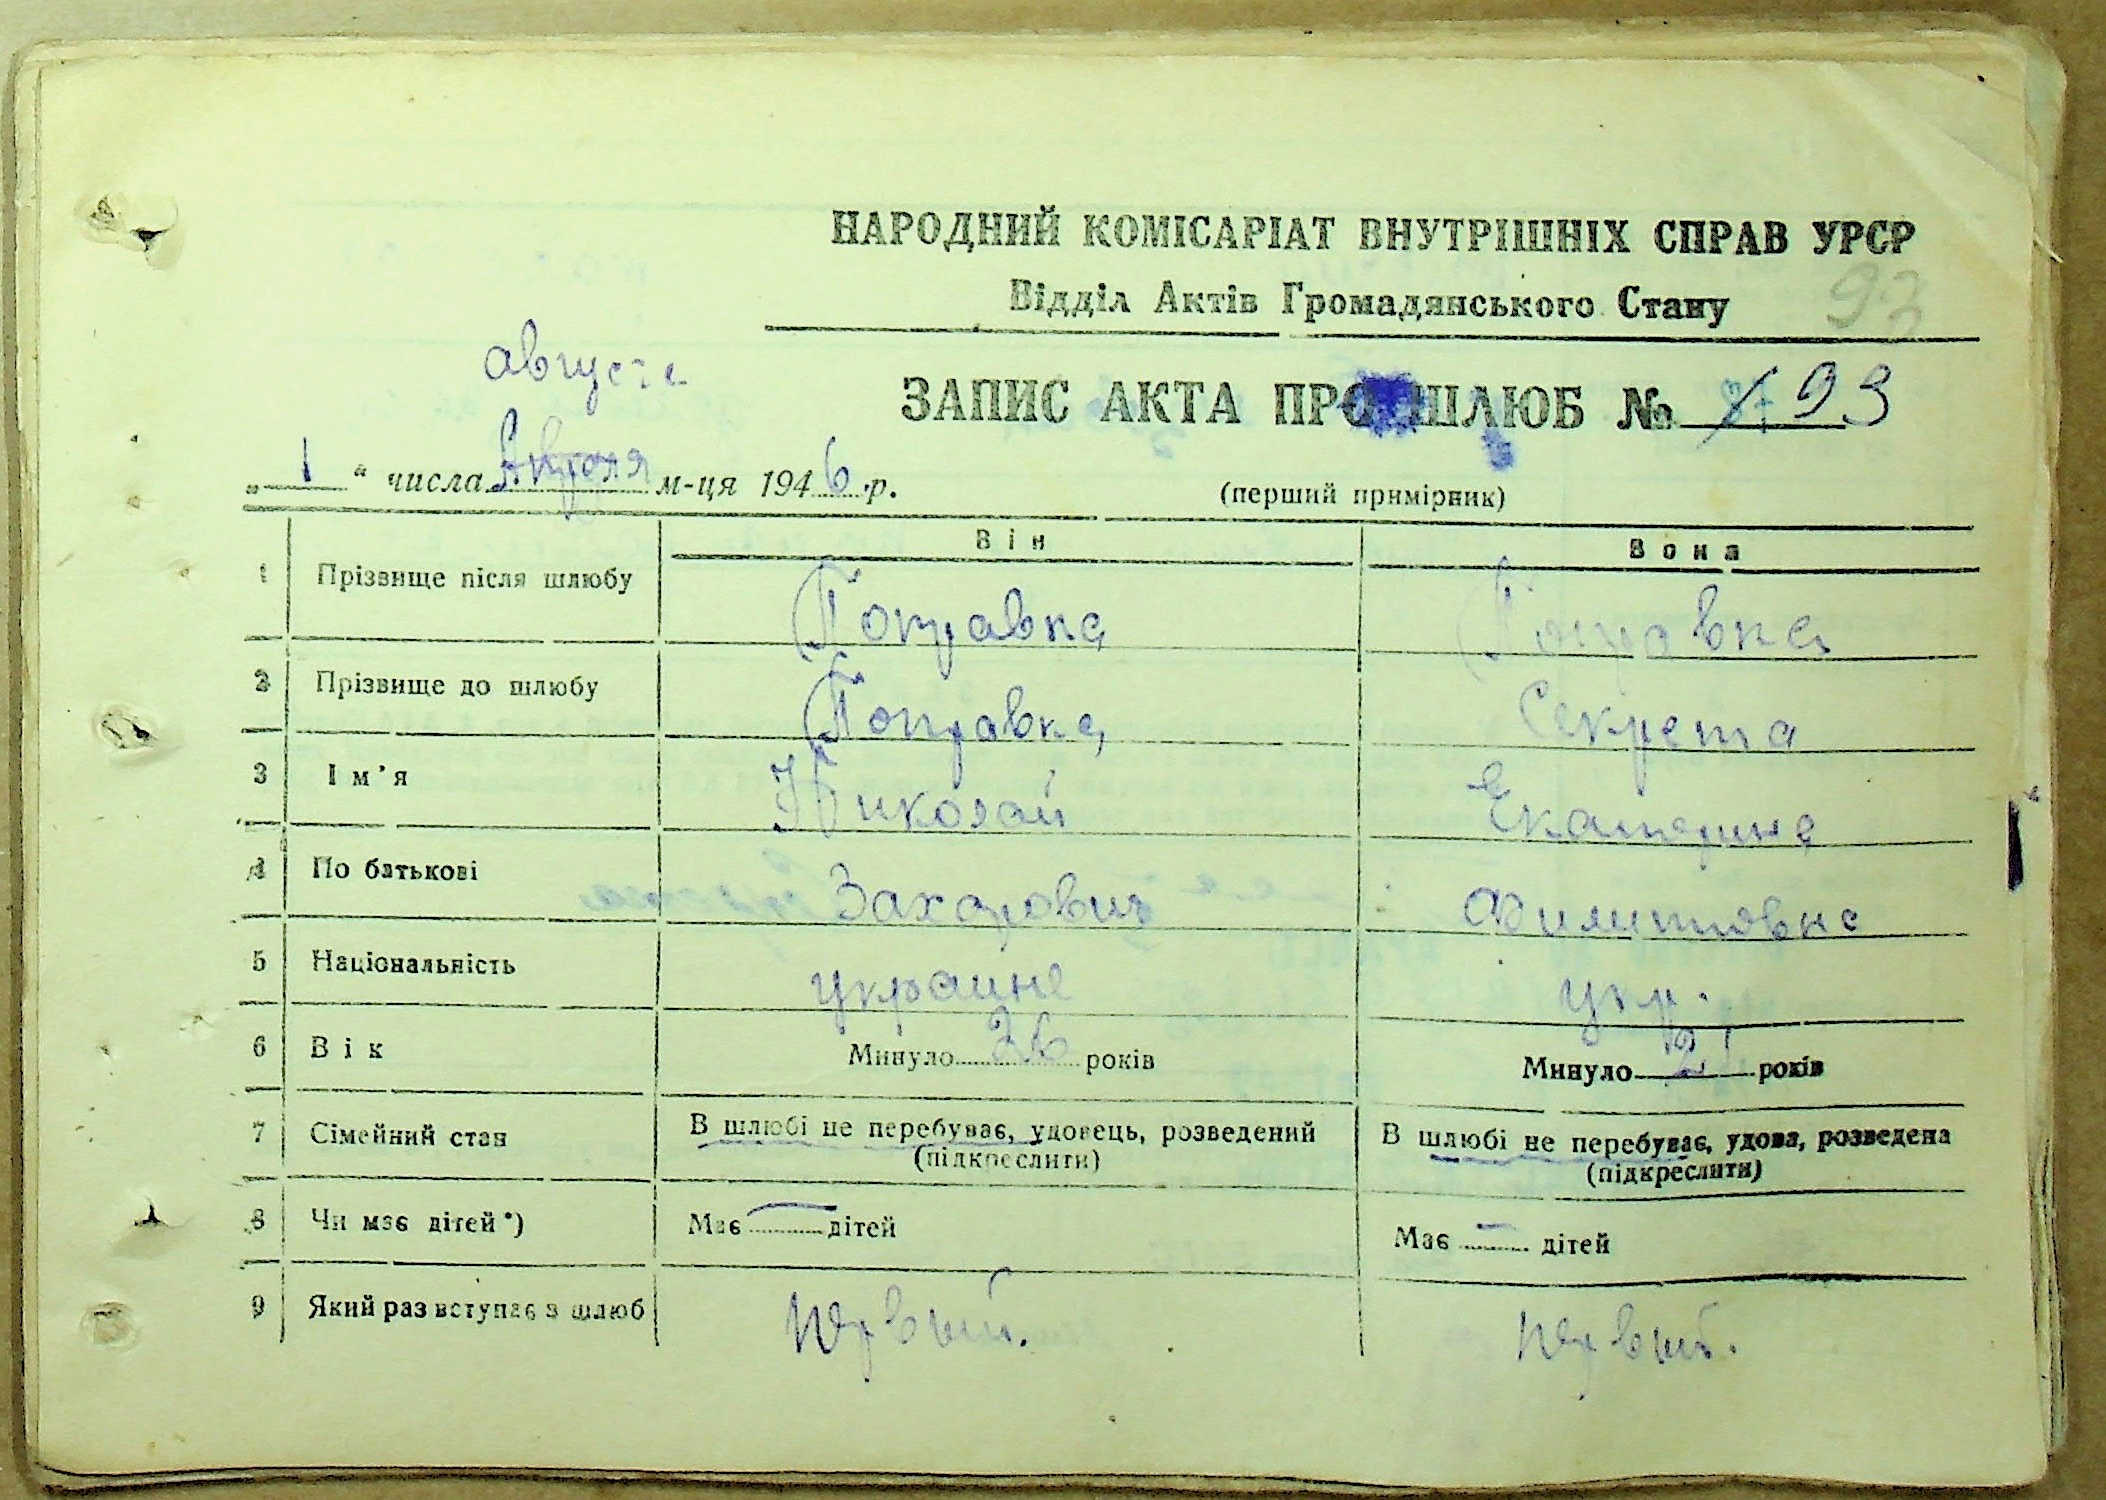 НАРОДНИЙ КОМІСАРІАТ ВНУТРІШНІХ СПРАВ УРСР
Відділ Актів Громадянського Стану
93
августа
ЗАПИС АКТА ПРО ШЛЮБ № 93
„ 1 “ числа Апреля м-ця 1946 р.
(перший примірник)
Він Вона
1 Прізвище після шлюбу Поправка Поправка
2 Прізвище до шлюбу Поправка Секрета
3 Ім’я Николай Екатерина
4 По батькові Захарович Филиповна
5 Національність украине укр.
6 Вік Минуло 26 років Минуло 21 років
7 Сімейний стан В шлюбі не перебуває, удовець, розведений В шлюбі не перебуває, удова, розведена
(підкреслити) (підкреслити)
8 Чи має дітей*) Має — дітей Має — дітей
9 Який раз вступає в шлюб первый. первый.